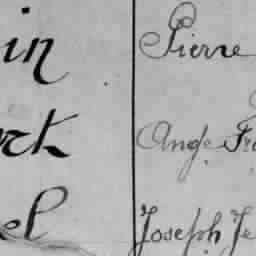 in Pierre
ork Ange Fra
el Joseph Je